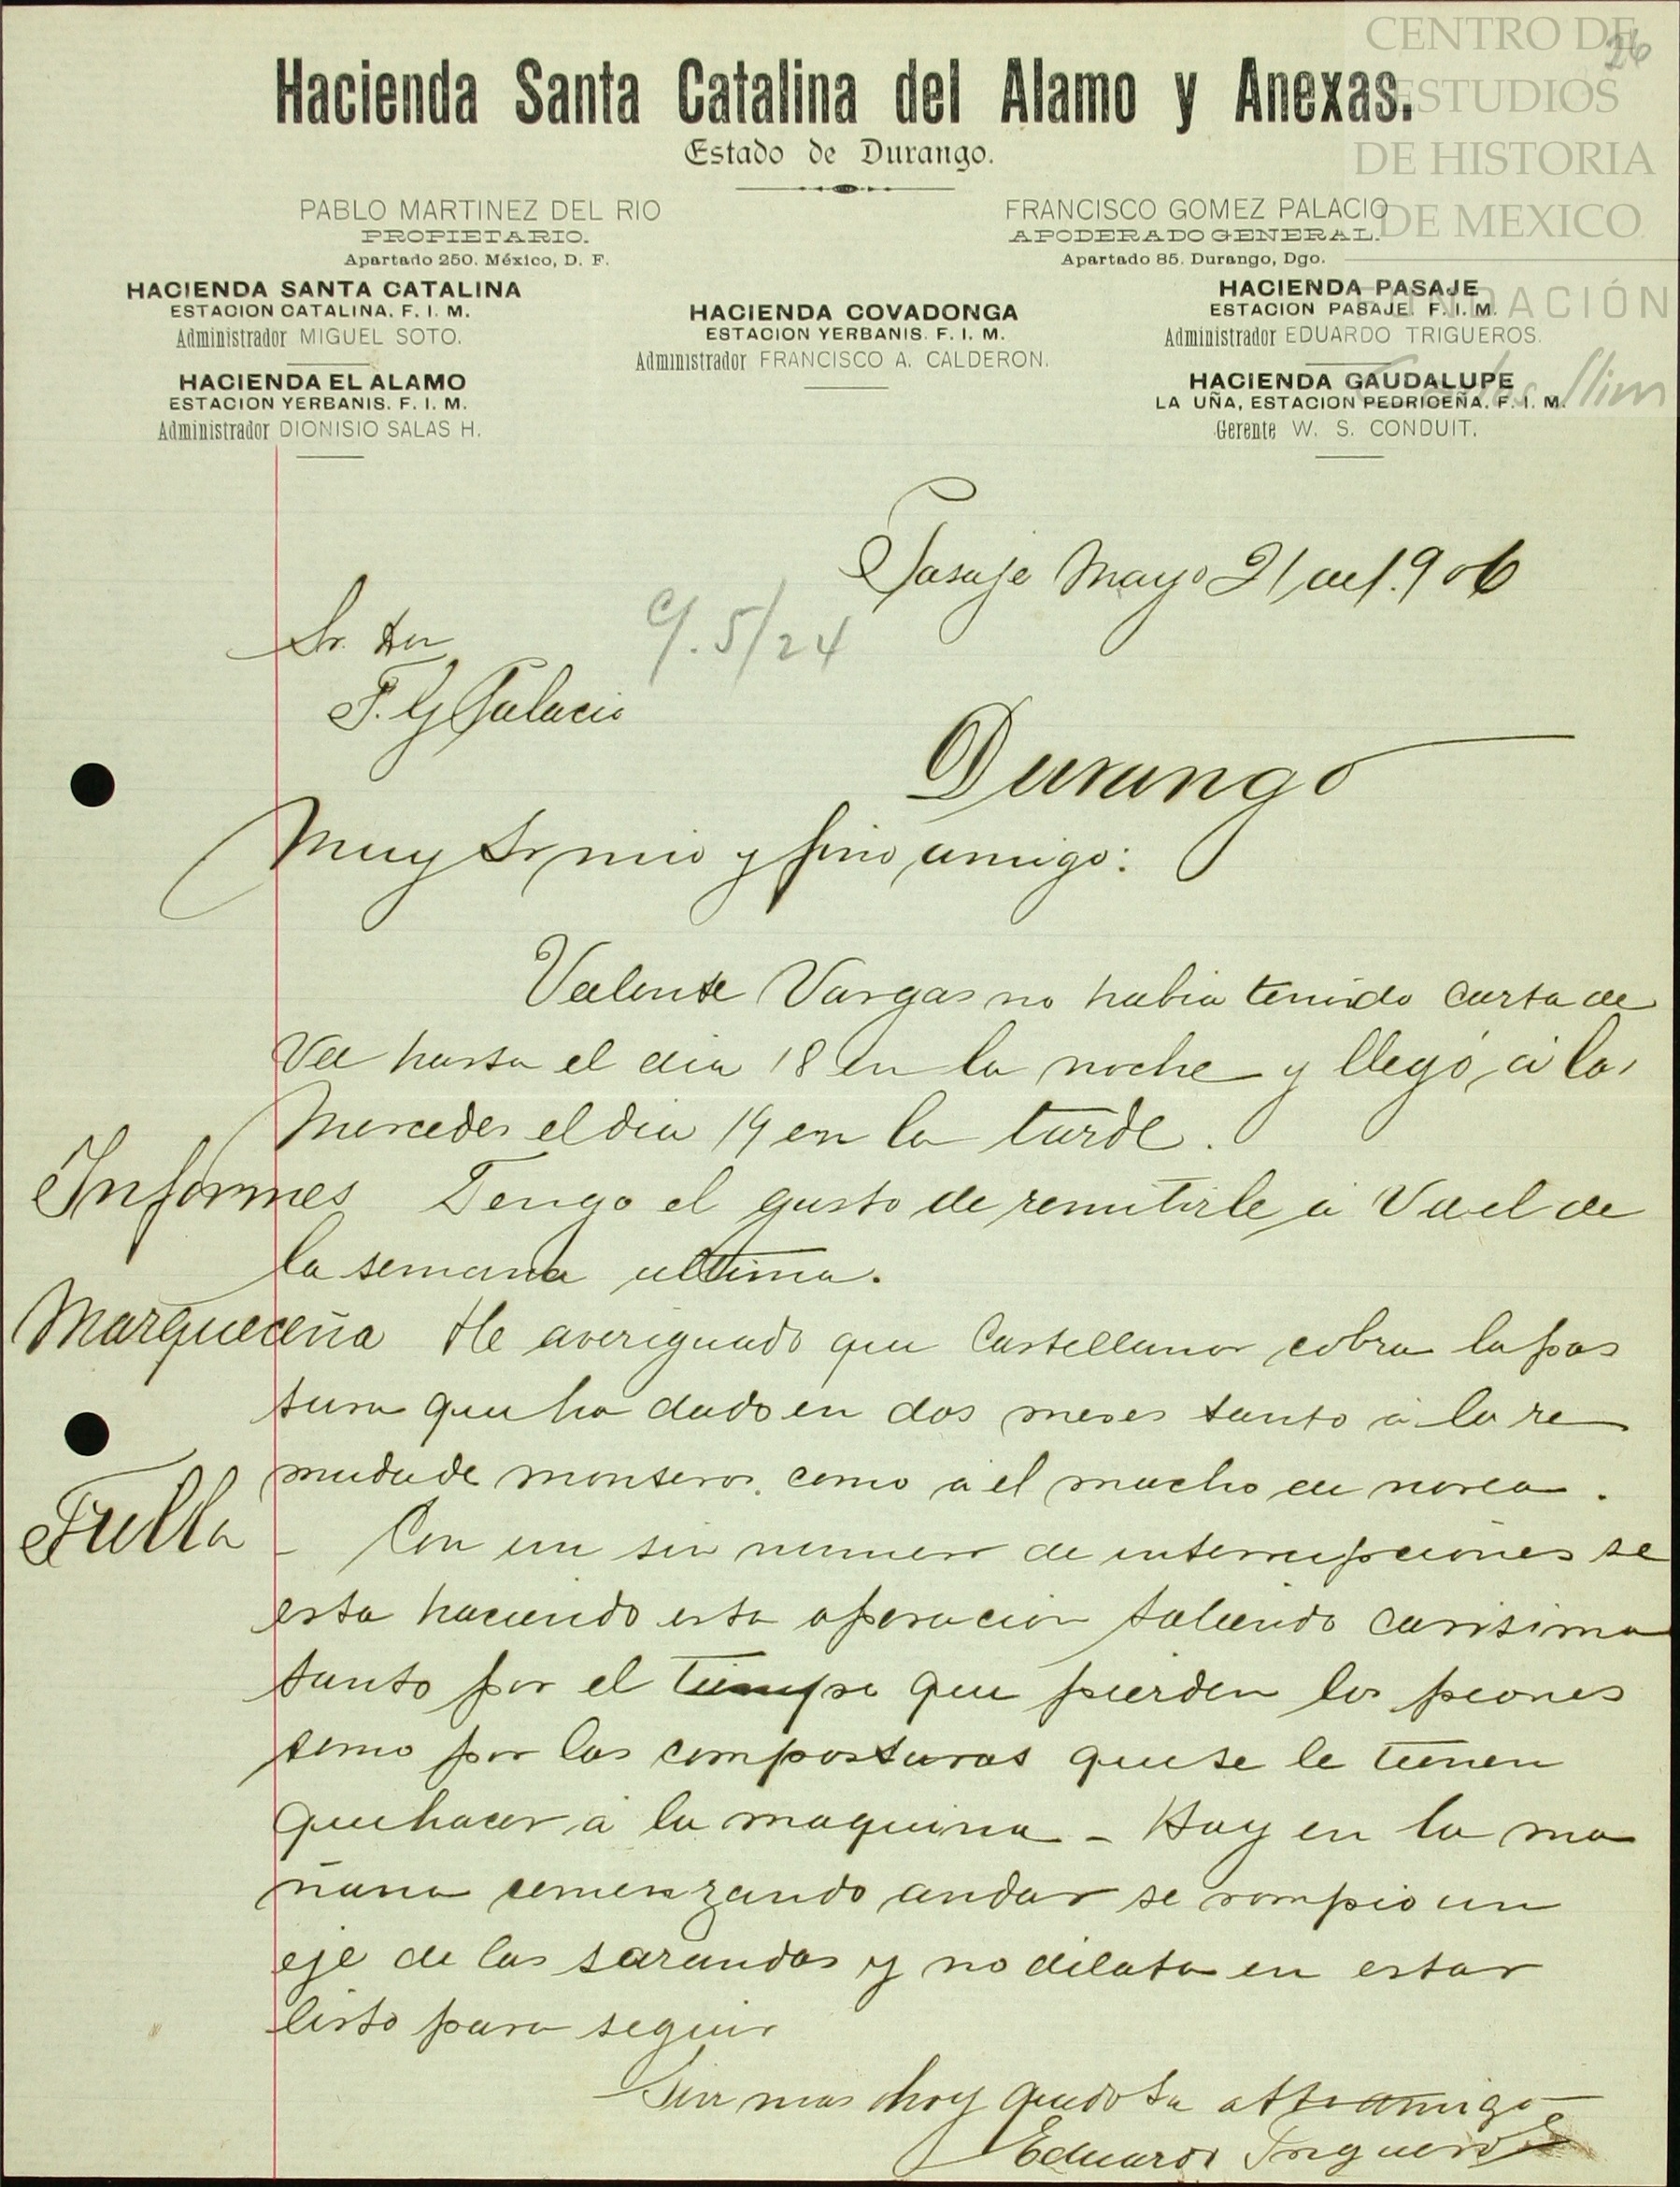 CENTRO DE
ESTUDIOS
DE HISTORIA
DE MEXICO
FUNDACIÓN
Carlos Slim
26
Hacienda Santa Catalina del Alamo y Anexas.
Estado de Durango.
PABLO MARTINEZ DEL RIO
PROPIETARIO.
Apartado 250. México, D. F.
FRANCISCO GOMEZ PALACIO
APODERADO GENERAL.
Apartado 85. Durango, Dgo.
HACIENDA SANTA CATALINA
ESTACION CATALINA. F. I. M.
Administrador MIGUEL SOTO.
HACIENDA EL ALAMO
ESTACION YERBANIS. F. I. M.
Administrador DIONISIO SALAS H.
HACIENDA COVADONGA
ESTACION YERBANIS. F. I. M.
Administrador FRANCISCO A. CALDERON.
HACIENDA PASAJE
ESTACION PASAJE. F. I. M.
Administrador EDUARDO TRIGUEROS.
HACIENDA GAUDALUPE
LA UÑA, ESTACION PEDRICEÑA. F. I. M.
Gerente W. S. CONDUIT.
Pasaje Mayo 21 de 1.906
C/. 5/24
Sr. Don
F. G Palacio
Durango
Muy Sr mio y fino amigo:
Valente Vargas no habia tenido carta de
Vd hasta el dia 18 en la noche y llegó á la
Mercedes el dia 19 en la tarde.
Informes Tengo el gusto de remitirle á Vd el de
la semana ultima.
Marqueceña He averiguado que Castellanos cobra la pas
tura que ha dado en dos meses tanto á la re
muda de monteros como á el macho de noria.
Trilla - Con un sin numero de interrupciones se
esta haciendo esta operacion saliendo carisima
tanto por el tiempo que pierden los peones
como por las composturas que se le tienen
que hacer á la maquina - Hoy en la ma
ñana comenzando andar se rompio un
eje de las sarandas y no dilata en estar
listo para seguir
Sin mas hoy quedo su atto amigo
Eduardo Trigueros